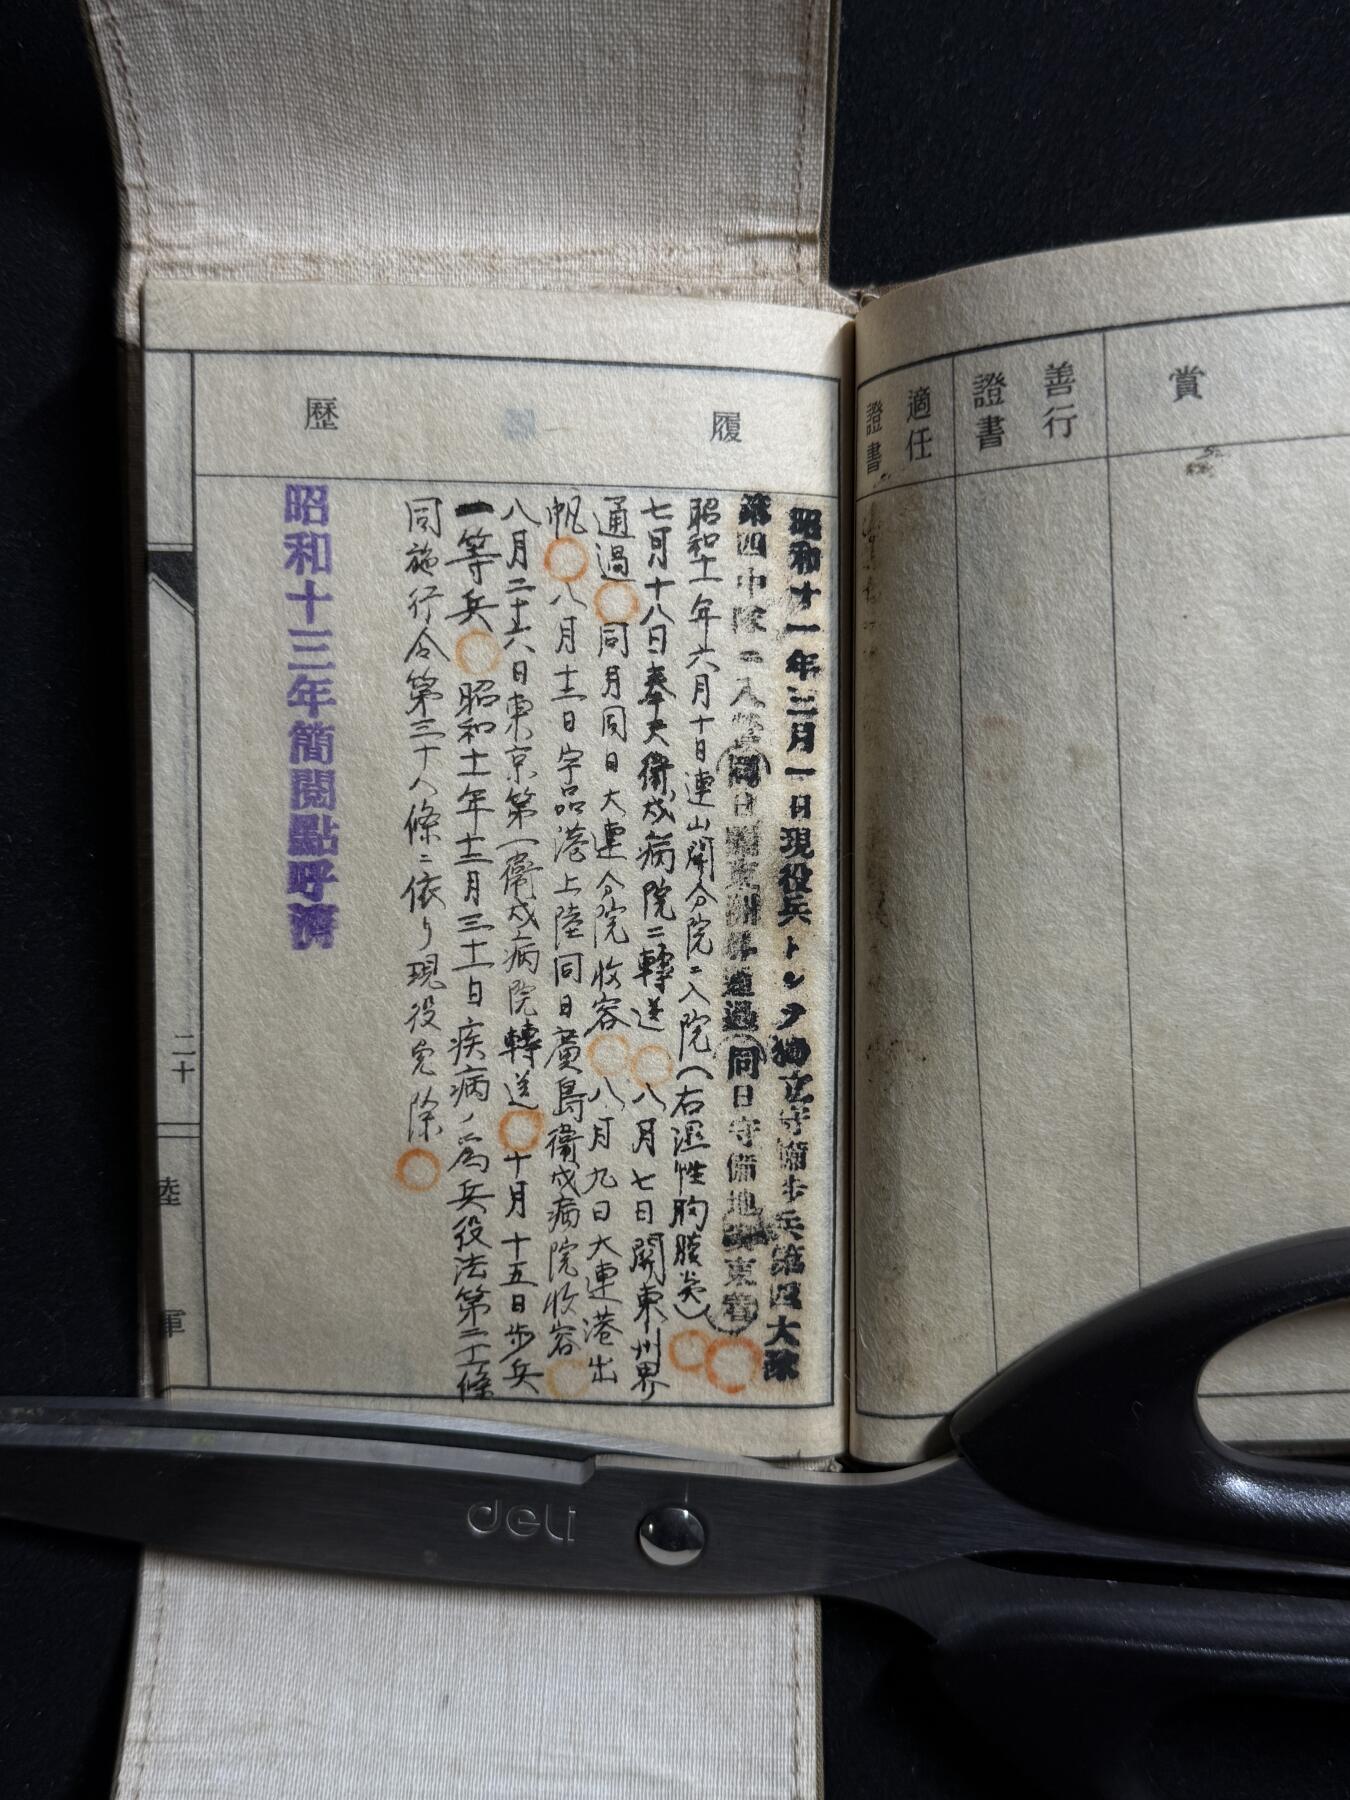 賞
善行
證書
適任
證書
履歷
昭和十一年三月一日現役兵トシテ獨立守備步兵第四大隊
第四中隊ニ入營同日關東州界通過同日守備地安東着
昭和十一年六月十日連山關分院ニ入院(右濕性胸膜炎)
七月十八日奉天衞戍病院ニ轉送 八月七日關東州界
通過 同月同日大連分院收容 八月九日大連港出
帆 八月十二日宇品港上陸同日廣島衞戍病院收容
八月二十六日東京第一衞戍病院轉送 十月十五日步兵
一等兵 昭和十一年十二月三十一日疾病ノ爲兵役法第二十條
同施行令第三十八條ニ依リ現役免除
昭和十三年簡閱點呼濟
二十
陸軍
deli